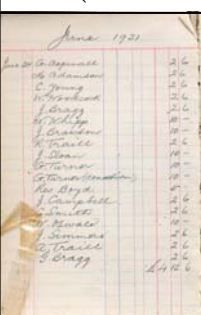 June 1921
June 20 G. Aspinall 2 6
A. Adamson 2 6
C. Young 2 6
W. Woodcock 2 6
J. Bragg 2 6
W. Whipp 10 -
J. Brandon 10 -
R. Traill 2 6
J. Sloan 10 -
G. Turner 10 -
G. Turner (donation) 10 -
Rev Boyd 5 -
J. Campbell 2 6
Smith 2 6
10 -
J. Simmers 2 6
A. Traill 2 6
G Bragg 2 6
£ 4 12 6